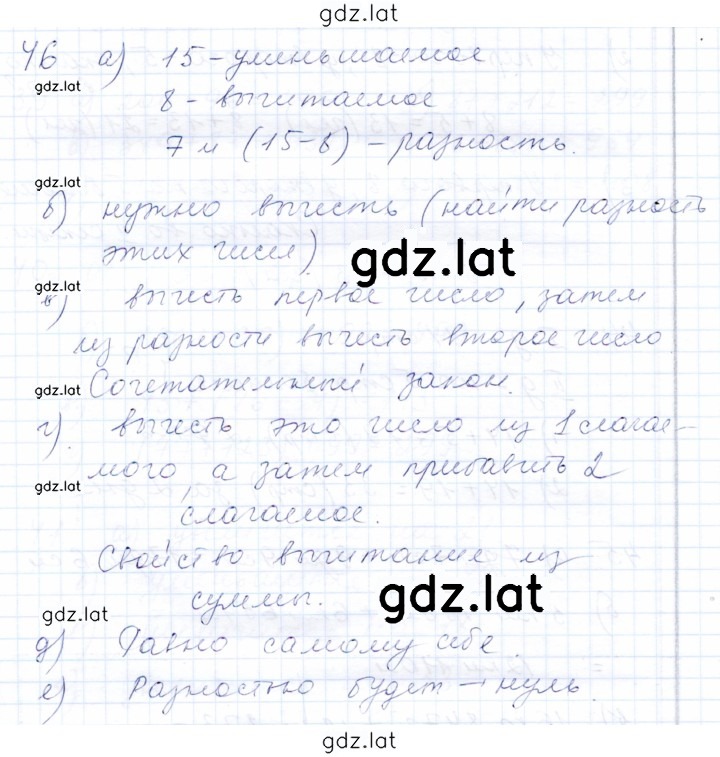 gdz.lat
46 а) 15 - уменьшаемое
gdz.lat
8 - вычитаемое
7 и (15-8) - разность.
gdz.lat
б) нужно вычесть (найти разность
этих чисел)
gdz.lat
gdz.lat
в) вычесть первое число, затем
из разности вычесть второе число.
gdz.lat
Сочетательный закон.
г) вычесть это число из 1 слагае-
мого, а затем прибавить 2
gdz.lat
слагаемое.
Свойство вычитание из
суммы.
gdz.lat
gdz.lat
д) Равно самому себе.
е) Разностью будет - нуль.
gdz.lat